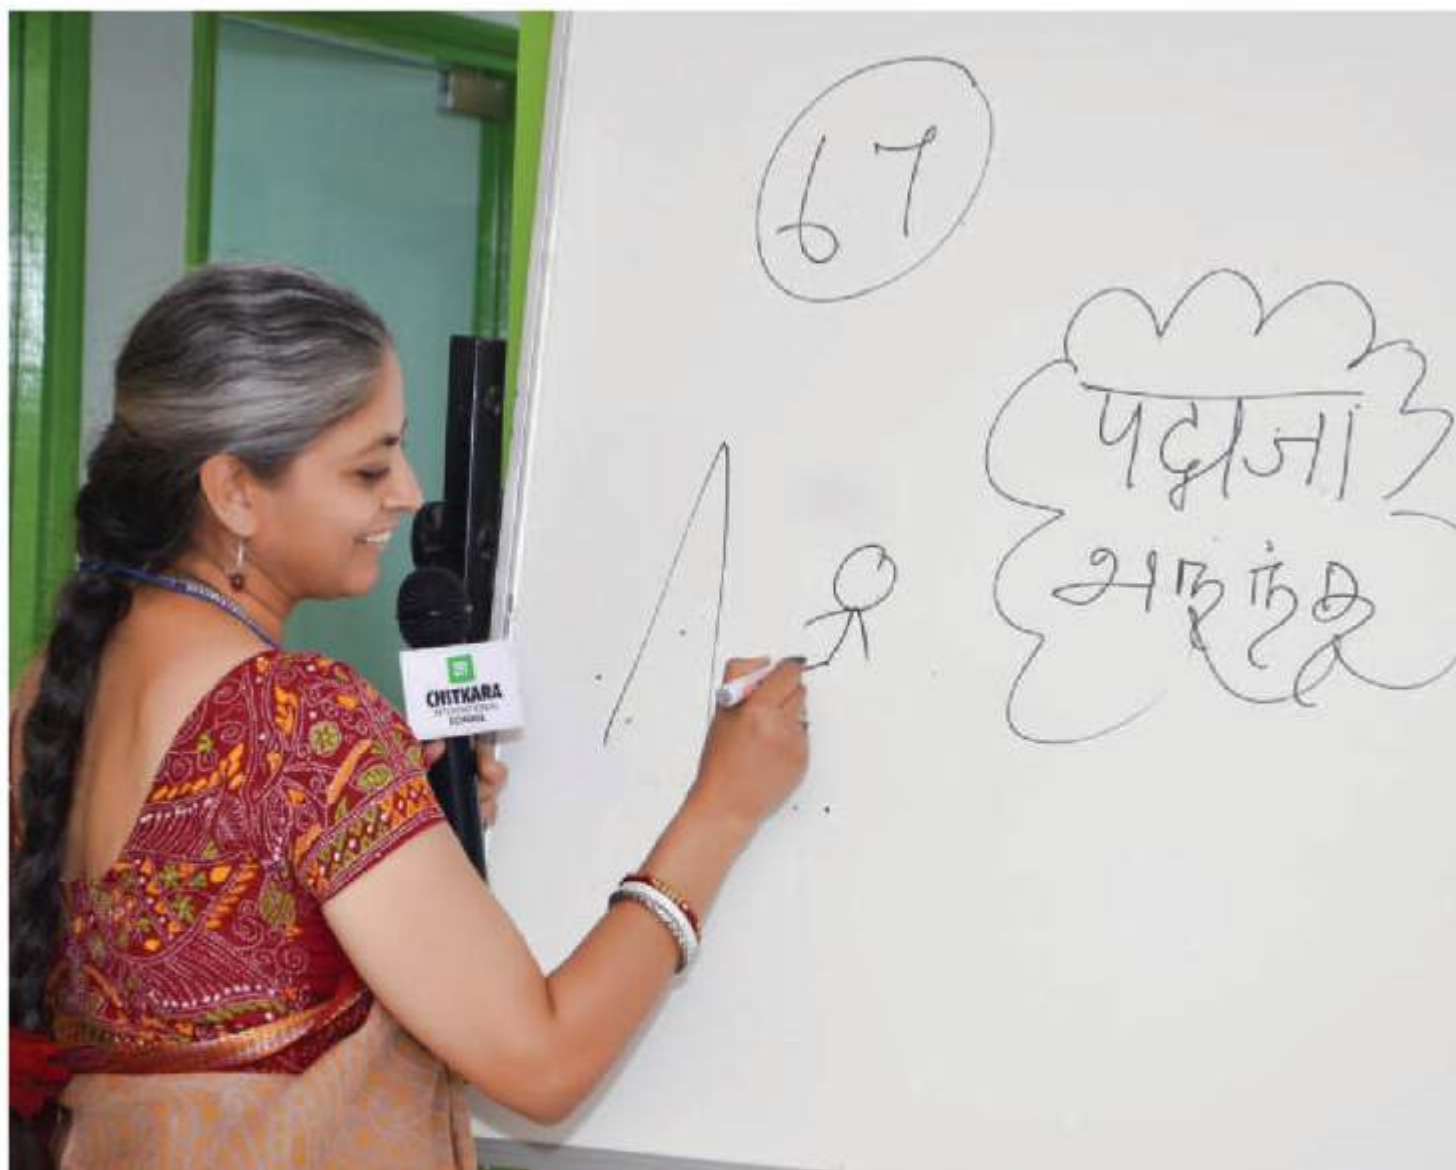 67
पद्मजा
CHITKARA
INTERNATIONAL
SCHOOL